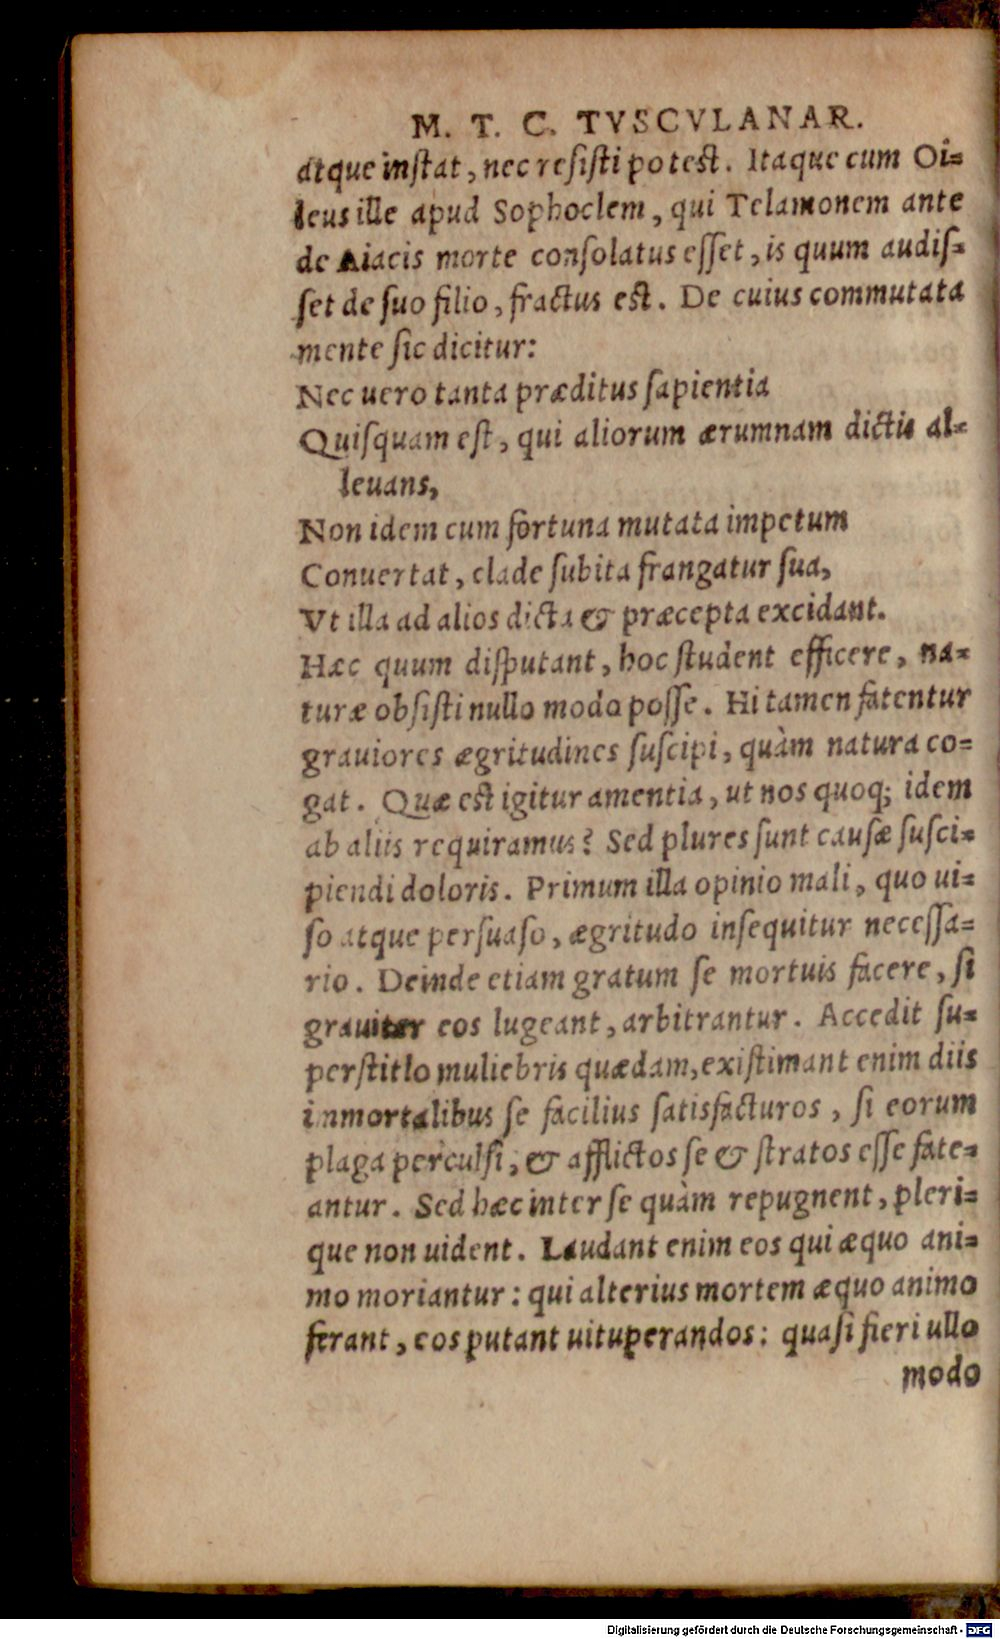 M. T. C. TVSCVLANAR.
atque instat, nec resisti potest. Itaque cum Oi=
leus ille apud Sophoclem, qui Telamonem ante
de Aiacis morte consolatus esset, is quum audis=
set de suo filio, fractus est. De cuius commutata
mente sic dicitur:
Nec uero tanta præditus sapientia
Quisquam est, qui aliorum ærumnam dictis al=
leuans,
Non idem cum fortuna mutata impetum
Conuertat, clade subita frangatur sua,
Vt illa ad alios dicta & præcepta excidant.
Hæc quum disputant, hoc student efficere, na=
turæ obsisti nullo modo posse. Hi tamen fatentur
grauiores ægritudines suscipi, quàm natura co=
gat. Quæ est igitur amentia, ut nos quoq; idem
ab aliis requiramus? Sed plures sunt causæ susci=
piendi doloris. Primum illa opinio mali, quo ui=
so atque persuaso, ægritudo insequitur necessa=
rio. Deinde etiam gratum se mortuis facere, si
grauiter eos lugeant, arbitrantur. Accedit su=
perstitIo muliebris quædam, existimant enim diis
inmortalibus se facilius satisfacturos, si eorum
plaga perculsi, & afflictos se & stratos esse fate=
antur. Sed hæc inter se quàm repugnent, pleri=
que non uident. Laudant enim eos qui æquo ani=
mo moriantur: qui alterius mortem æquo animo
ferant, eos putant uituperandos: quasi fieri ullo
modo
Digitalisierung gefördert durch die Deutsche Forschungsgemeinschaft - DFG